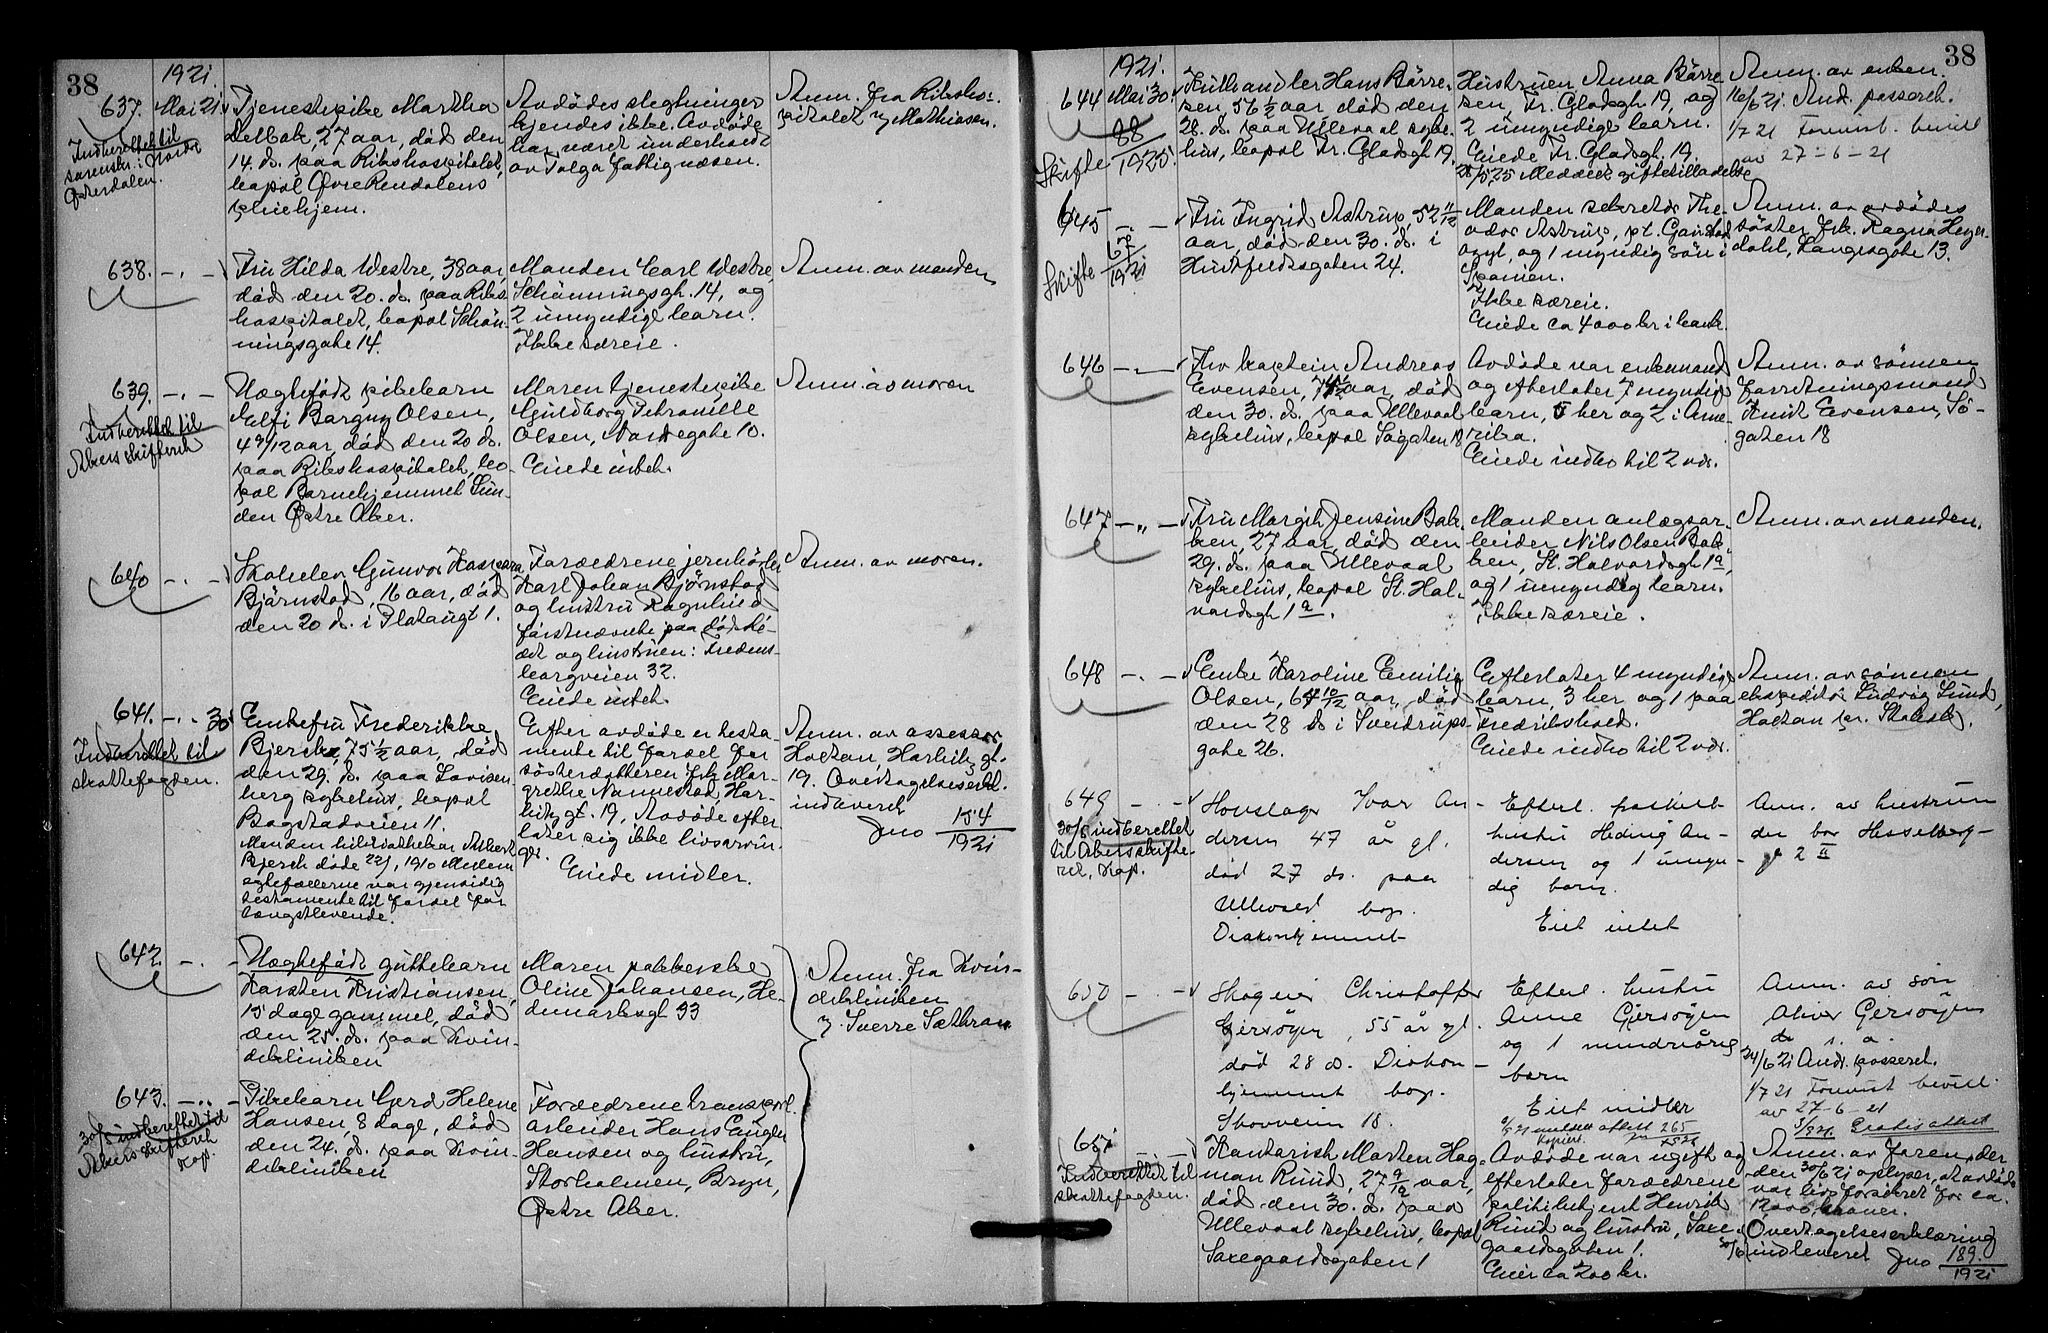 38
1921
637. Mai 21. Tjenestepike Martha
Delbak, 27 aar, død den
14. ds. paa Rikshospitalet,
bopæl Øvre Rendalens
pleiehjem.
Indberettet til
sorenskr. i Nordre
Østerdalen.
Avdødes slegtninger
kjendes ikke. Avdøde
har været underholdt
av Tolga fattigvæsen.
Anm. fra Rikshos-
pitalet v/ Mathiesen.
638. Fru Hilda Westre, 38 aar
død den 20. ds. paa Riks
hospitalet, bopæl Schøn-
ningsgate 14.
Manden Carl Westre,
Schønningsgt. 14, og
2 umyndige barn.
Ikke særeie.
Anm. av manden
639. Uægtefødt pikebarn
Elfi Bargny Olsen,
4 9/12 aar, død den 20 ds.
paa Rikshospitalet, bo-
pæl Barnehjemmet Sun-
den Østre Aker.
Indberettet til
Akers skifteret
Moren tjenestepike
Guldborg Petranille
Olsen, Nordregate 10.
Eiede intet.
Anm. av moren
640 Skoleelev Gunvor Kaspara
Bjørnstad, 16 aar, død
den 20 ds. i Platougt 1.
Forældrene jernhøvler
Karl Johan Bjørnstad
og hustru Ragnhild
førstnævnte paa dødsle-
iet og hustruen: Fredens-
borgveien 32.
Eiede intet.
Anm. av moren.
641. 30. Enkefru Frederikke
Bjerck, 75 1/2 aar, død
den 29. ds. paa Lovisen
berg sykehus, bopæl
Bogstadveien 11.
Manden bibliothekar Albert
Bjerck døde 22/1 1910 Mellem
egtefællerne var gjensidig
testamente til fordel for
længstlevende.
Indberettet til
skattefogden.
Efter avdøde er testa-
mente til fordel for
søsterdatteren frk. Mar-
grethe Nannestad, Har-
bitz gt. 19, Avdøde efter-
later sig ikke livsarvin-
ger.
Eiede midler.
Anm. av assessor
Holtan, Harbitz gt.
19. Overtagelseserkl.
indleveret
Jno 154
1921
642. Uægtefødt guttebarn
Karsten Kristiansen,
15 dage gammel, død
den 25. ds. paa Kvin-
deklinikken
Moren pakkerske
Oline Johansen, He-
denmarksgt 33
Anm. fra Kvin-
deklinikken
v. Sverre Sæthran
643. Pikebarn Gerd Helene
Hansen, 8 dage, død
den 24. ds. paa Kvin-
deklinikken
30/5 indberettet til
Akers skifteret
Kap.
Forældrene transport
arbeider Hans Engler
Hansen og hustru,
Storholmen, Bryn,
Østre Aker.
38
1921.
644 Mai 30. Kulhandler Hans Børre-
sen 56 1/2 aar død den
28. ds. paa Ullevaal syke-
hus, bopæl Fr. Gladsgt. 19.
Skifte 88
1925.
Hustruen Anna Børre
sen, Fr. Gladsgt. 19, og
2 umyndige barn.
Eiede Fr. Gladsgt. 19.
25/5 25 Meddelt giftetilladelse
Anm. av enken.
16/6 21. And. passeret.
1/7 21 Formist. bevill
av 27-6-21
645 Fru Ingrid Astrup, 52 11/12
aar, død den 30. ds. i
Huitfeldtsgaten 24.
Skifte 67
1921
Manden sekretær The-
odor Astrup, pt. Gaustad
asyl, og 1 myndig søn i
Spanien.
Ikke særeie.
Eiede ca 4000 kr i bank.
Anm. av avdødes
søster frk. Ragna Heyer-
dahl, Langesgate 13.
646 Fhv kaptein Andreas
Evensen, 74 1/2 aar, død
den 30. ds. paa Ullevaal
sykehus, bopæl Sogaten 18
Avdøde var enkemand
og efterlater 7 myndige
barn, 5 her og 2 i Ame-
rika.
Eiede indbo til 2 vdr.
Anm. av sønnen
forretningsmand
Knut Evensen, Sø-
gaten 18
647 Fru Margit Jensine Bak-
ken, 27 aar, død den
29. ds. paa Ullevaal
sykehus, bopæl St. Hal-
vardsgt 1 a.
Manden anlægsar-
beider Nils Olsen Bak-
ken, St. Halvardsgt 1 a,
og 1 umyndig barn.
Ikke særeie.
Anm. av manden.
648 Enke Karoline Emilie
Olsen, 64 10/12 aar, død
den 28 ds i Sverdrups-
gate 26.
Efterlater 4 myndige
barn, 3 her og 1 paa
Fredrikshald.
Eiede indbo til 2 vdr.
Anm. av sønnen
ekspeditør Ludvig Lund,
Holtan pr. Skabak.
649 Hovslager Ivar An-
dersen 47 år gl.
død 27 ds. paa
Ullevaal bop.
Diakonhjemmet
30/5 indberettet
til Akers skifte-
ret, Kap.
Efterl. fraskilt
hustru Hedvig An-
dersen og 1 umyn-
dig barn.
Eiet intet
Anm. av hustruen
der bor Hesselberg-
gt 2 II
650 Skogeier Christoffer
Gjersøyen, 55 år gl.
død 28 ds. Diakon-
hjemmet bop.
Skovveien 18.
Efterl. hustru
Anne Gjersøyen
og 1 mindreårig
barn
Eiet midler
Anm. av søn
Oliver Gjersøyen
24/6 21 And. passeret.
1/7 21 Formist bevill.
av 27-6-21
Gratis attest
651 Kontorist Morten Hag-
man Ruud, 27 9/12 aar,
død den 30. ds. paa
Ullevaal sykehus, bopæl
Saxegaardsgaten 1
Indberettet til
skattefogden.
Avdøde var ugift og
efterlater forældrene
politibetjent Henrik
Ruud og hustru, Saxe-
gaardsgaten 1.
Eier ca 200 kr.
Anm. av faren, der
den 30/6 21 oplyser, at avdøde
var livsforsikret for ca.
12000 kroner.
Overtagelseserklæring
indleveret Jno 189.
1921